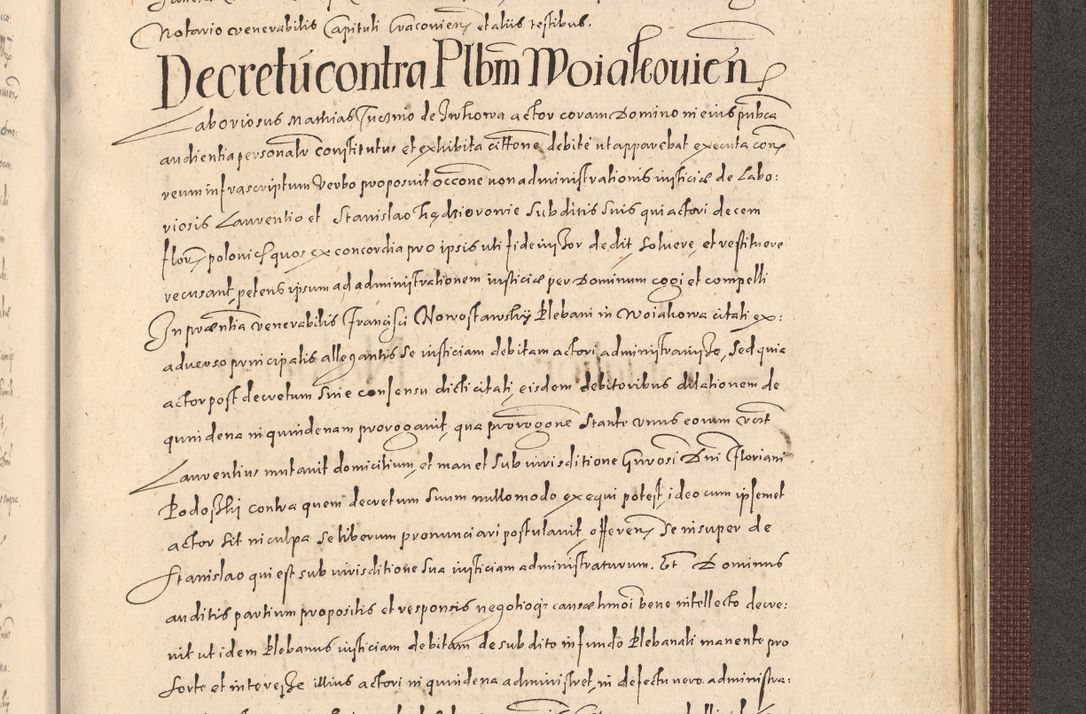 Notario venerabilis Capituli Cracovien et aliis testibus.
Decretú contra Plbm Woiakovien
Laboriosus Mathias de actor coram Domino in eius publica
audientia personalr constitutus et exhibita cittone debite ut apparebat executa con
reum infrascriptum verbo proposuit occone non administrationis iusticiæ de Labo:
riosis Laurentio et Stanislao subditis suis qui actori decem
flor polonicos quos ex concordia pro ipsis uti fideiussor dedit solvere et restituere
recusant, petens ipsum ad administrationem iusticiæ per Dominum cogi et compelli
In præntia venerabilis Francisci Nowostawskÿ Plebani in Woiakowa citati ex:
adverso principalis allegantis se iusticiam debitam actori administravisse, sed quia
actor post decretum sine consensu dicti citati, eisdem debitoribus dilationem de
quindena in quindenam prorogavit, qua prorogone stante unus eorum
Laurentius mutavit domicilium et manet sub iurisditione Gnrosi Dni Floriani
Podoskÿ contra quem decretum suum nullo modo exequi potest, ideo cum ipsemet
actor sit in culpa se liberum pronunciari postulavit, offeren se insuper de
Stanislao qui est sub iurisditione sua iusticiam administraturum. Et Dominus
auditis partium propositis et responsis negotioq causæ hmoi bene intellecto decre:
vit ut idem Plebanus iusticiam debitam de subdito in fundo Plebanali manente pro
sorte et interesse illius actori in quindena administret, in defectu vero administra: